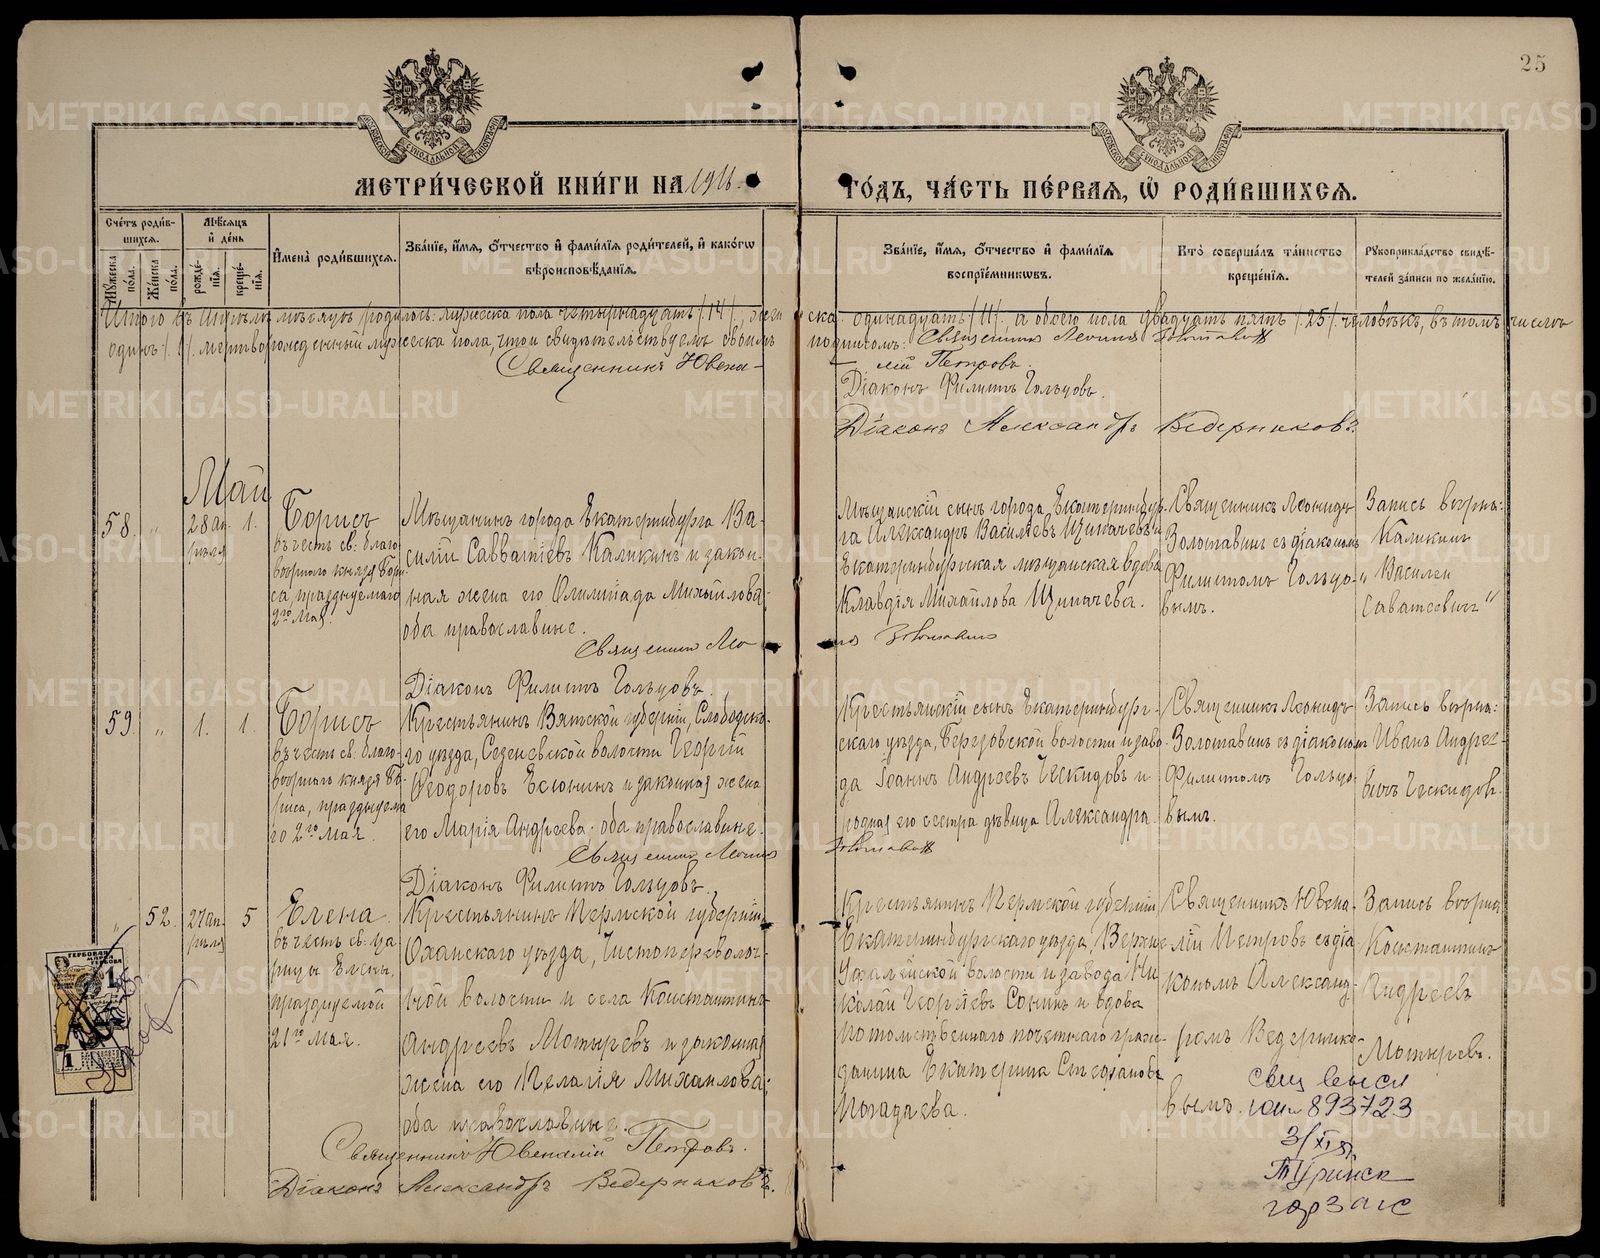 25
МОСКОВСКОЙ СѴНОДАЛЬНОЙ ТИПОГРАФІИ
МОСКОВСКОЙ СѴНОДАЛЬНОЙ ТИПОГРАФІИ
МЕТРИ́ЧЕСКОЙ КНИ́ГИ НА 1916.
ГО́ДЪ, ЧА́СТЬ ПЕ́РВАЯ, Ѡ҆ РОДИ́ВШИХСЯ.
Сче́тъ роди́в-
шихся.
Мꙋ́жеска по́ла.
Же́нска по́ла.
Мѣ́сяцъ
и҆ де́нь
рожде́-
нїя.
креще́-
нїя.
И҆мена̀ роди́вшихся.
Зва́нїе, и҆́мя, ѻ҆́тчество и҆ фами́лїя роди́телей, и҆ како́гѡ
вѣроисповѣ́данїя.
Зва́нїе, и҆́мя, ѻ҆́тчество и҆ фами́лїя
воспрїе́мниковъ.
Кто̀ соверша́лъ та́инство
креще́нїя.
Рꙋкоприкла́дство свидѣ́-
телей за́писи по жела́нїю.
Итого въ Апрѣлѣ мѣсяцѣ родилось: мужеска пола четырнадцать /14/, жен
ска одинадцать /11/, а обоего пола двадцать пять /25/ человѣкъ, въ томъ числѣ
одинъ /1/ мертворожденный мужеска пола, что и свидѣтельствуемъ своимъ
подписомъ: Священникъ Леонидъ Золотавинъ
Священникъ Ювена-
лій Петровъ.
Діаконъ Филиппъ Гольцовъ.
Діаконъ Александръ Ведерниковъ.
Май
58.
"
28 ап-
рѣля
1.
Борисъ
въ честь св: благо-
вѣрнаго князя Бори-
са, празднуемаго
2го Мая.
Мѣщанинъ города Екатеринбурга Ва-
силій Савватіевъ Каликинъ и закон-
ная жена его Олимпіада Михайлова,
оба православные.
Священникъ Лео-
Діаконъ Филиппъ Гольцовъ.
Мѣщанскій сынъ города Екатеринбур-
га Александръ Васильевъ Щипачевъ и
Екатеринбургская мѣщанская вдова
Клавдія Михайлова Щипачева.
нидъ Золотавинъ
Священникъ Леонидъ
Золотавинъ съ діакономъ
Филиппомъ Гольцо-
вымъ.
Запись вѣрна:
Каликинъ
„Василей
Саватеевичъ“
59.
"
1.
1.
Борисъ
въ честь св. благо-
вѣрнаго князя Бо-
риса, празднуема
го 2го Мая.
Крестьянинъ Вятской губерніи, Слободска-
го уѣзда, Сезеневской волости Георгій
Ѳеодоровъ Есюнинъ и законная жена
его Марія Андреева, оба православные.
Священникъ Леонидъ
Діаконъ Филиппъ Гольцовъ.
Крестьянскій сынъ Екатеринбург-
скаго уѣзда, Березовской волости и заво-
да Іоаннъ Андреевъ Ческидовъ и
родная его сестра дѣвица Александра.
Золотавинъ
Священникъ Леонидъ
Золотавинъ съ діакономъ
Филиппомъ Гольцо-
вымъ.
Запись вѣрна:
Иванъ Андрее-
вичъ Ческидовъ.
"
52.
27 ап-
рѣля
5
Елена
въ честь св. ца-
рицы Елены,
празднуемой
21го Мая.
Крестьянинъ Пермской губерніи,
Оханскаго уѣзда, Чистопереволоч-
ной волости и села Константинъ
Андреевъ Мотыревъ и законная
жена его Пелагія Михаилова,
оба православные.
Священникъ Ювеналій Петровъ.
Діаконъ Александръ Ведерниковъ.
Крестьянинъ Пермской губерніи
Екатеринбургскаго уѣзда, Верхне-
Уфалейской волости и завода Ни
колай Георгіевъ Сонинъ и вдова
потомственнаго почетнаго граж-
данина Екатерина Стефанова
Погадаева.
Священникъ Ювена-
лій Петровъ съ діа-
кономъ Александ-
ромъ Ведернико-
вымъ.
Запись вѣрна
Константинъ
Андреевъ
Мотыревъ.
893723
Туринск
горзагс
ГЕРБОВАЯ МАРКА
1
1
METRIKI.GASO-URAL.RU